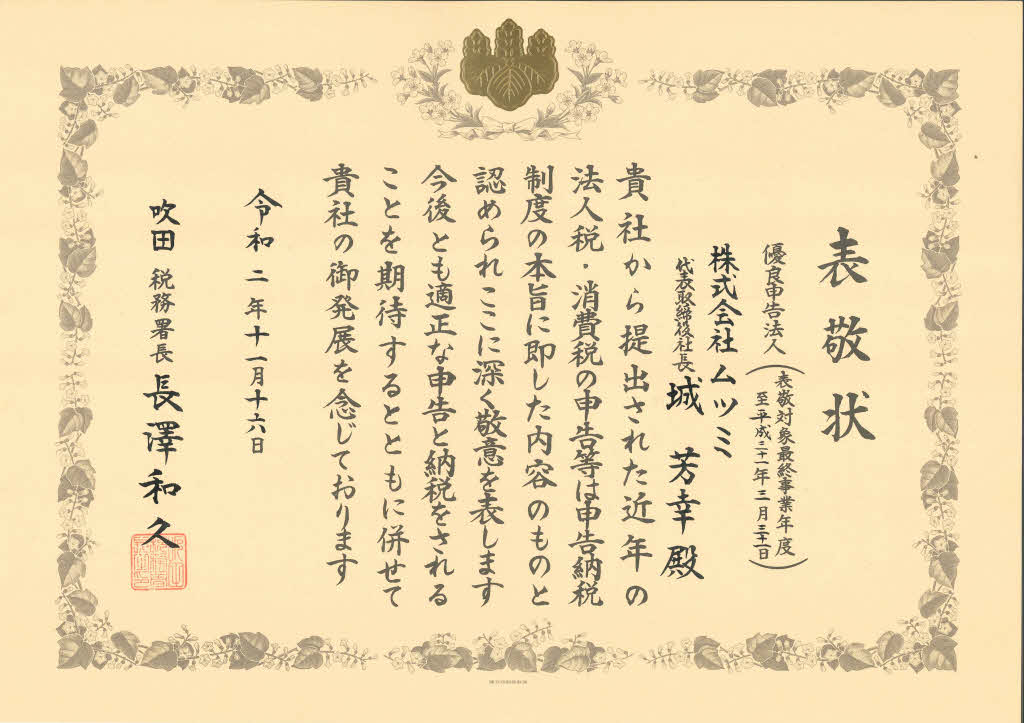 表敬状
優良申告法人
(表敬対象最終事業年度
至平成三十一年三月三十一日)
株式会社ムツミ
代表取締役社長 城 芳幸 殿
貴社から提出された近年の
法人税・消費税の申告等は申告納税
制度の本旨に即した内容のものと
認められここに深く敬意を表します
今後とも適正な申告と納税をされる
ことを期待するとともに併せて
貴社の御発展を念じております
令和二年十一月十六日
吹田税務署長 長澤和久